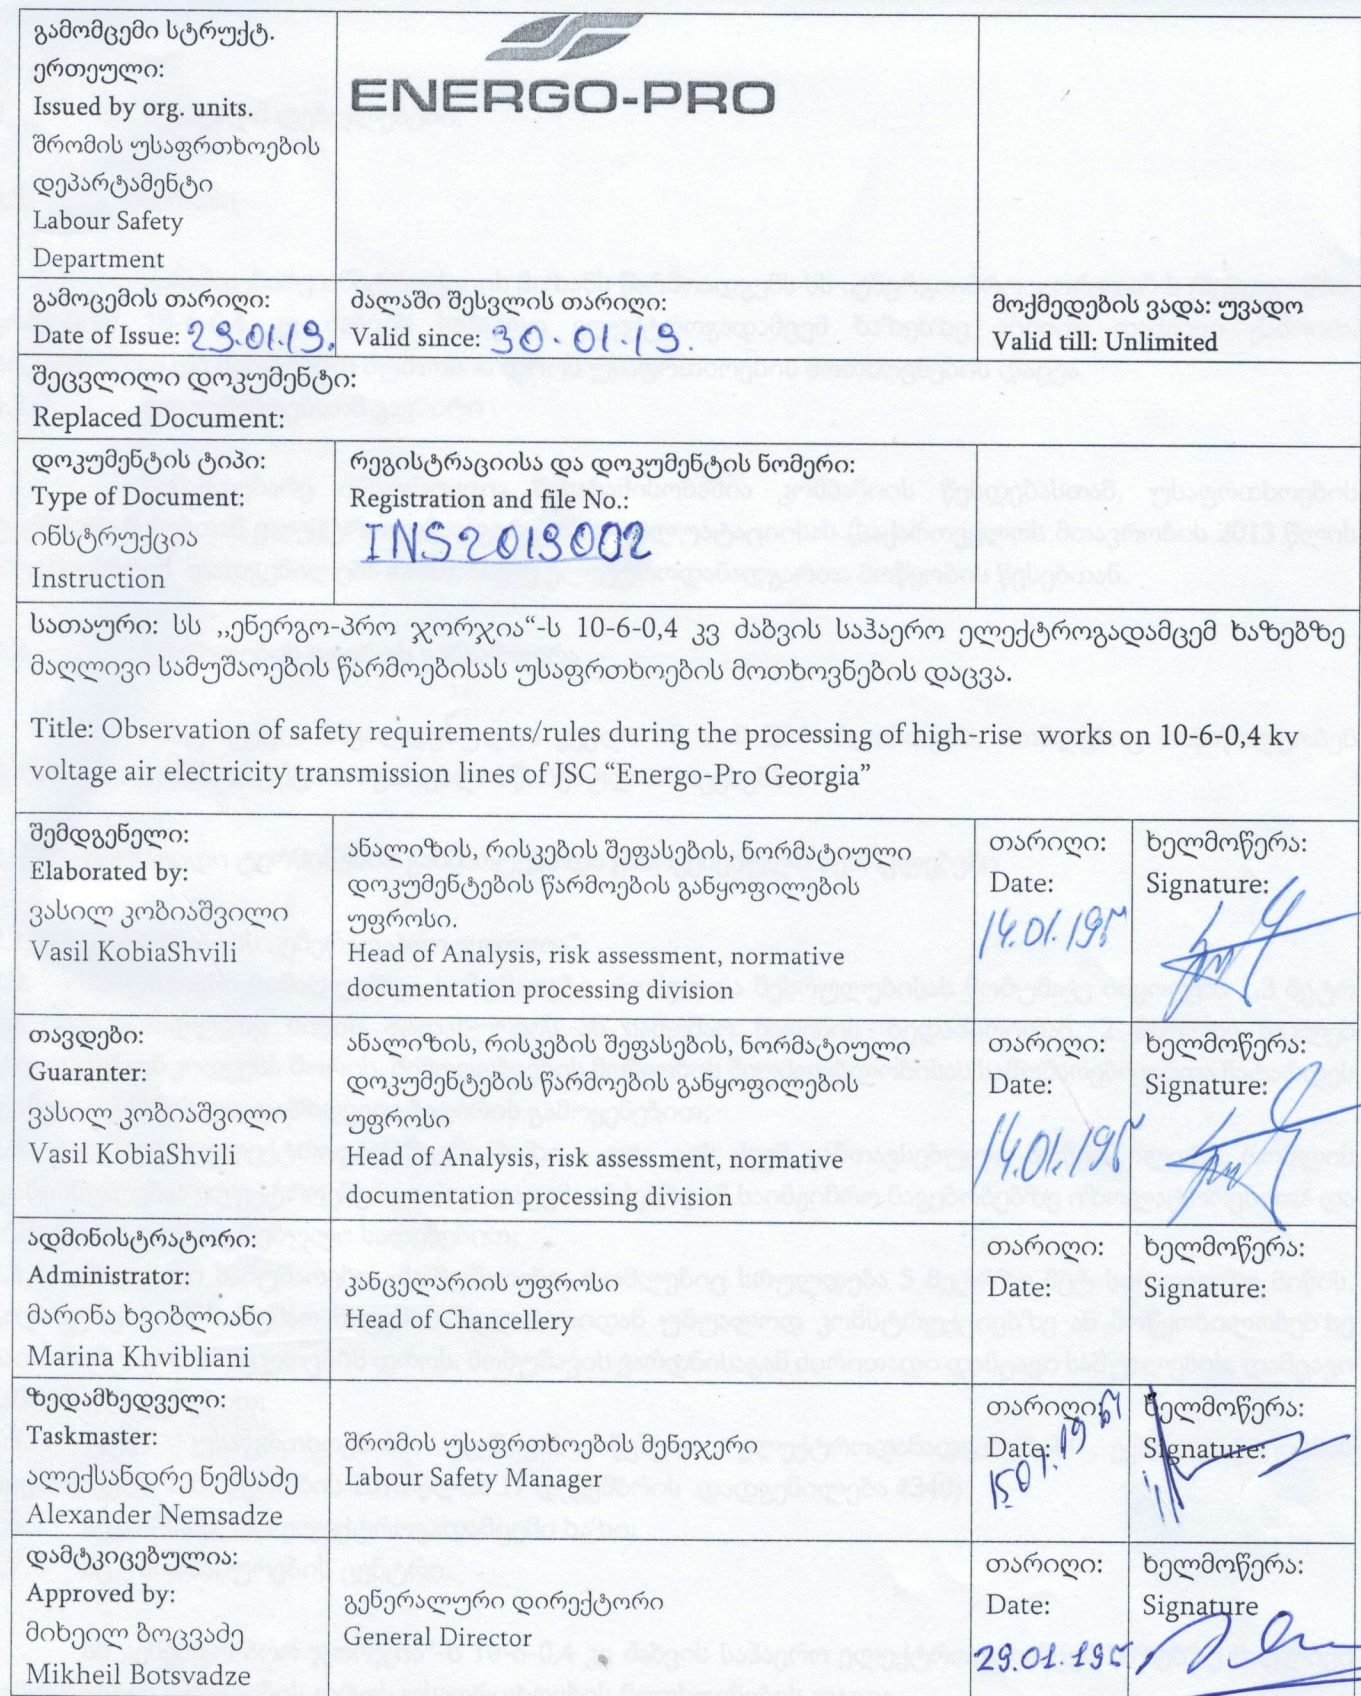 გამომცემი სტრუქტ.
ერთეული:
Issued by org. units.
შრომის უსაფრთხოების
დეპარტამენტი
Labour Safety
Department
ENERGO-PRO
გამოცემის თარიღი:
Date of Issue: 29.01.19.
ძალაში შესვლის თარიღი:
Valid since: 30.01.19.
მოქმედების ვადა: უვადო
Valid till: Unlimited
შეცვლილი დოკუმენტი:
Replaced Document:
დოკუმენტის ტიპი:
Type of Document:
ინსტრუქცია
Instruction
რეგისტრაციისა და დოკუმენტის ნომერი:
Registration and file No.:
INS2019002
სათაური: სს ,,ენერგო-პრო ჯორჯია“-ს 10-6-0,4 კვ ძაბვის საჰაერო ელექტროგადამცემ ხაზებზე
მაღლივი სამუშაოების წარმოებისას უსაფრთხოების მოთხოვნების დაცვა.
Title: Observation of safety requirements/rules during the processing of high-rise works on 10-6-0,4 kv
voltage air electricity transmission lines of JSC “Energo-Pro Georgia”
შემდგენელი:
Elaborated by:
ვასილ კობიაშვილი
Vasil KobiaShvili
ანალიზის, რისკების შეფასების, ნორმატიული
დოკუმენტების წარმოების განყოფილების
უფროსი.
Head of Analysis, risk assessment, normative
documentation processing division
თარიღი:
Date:
14.01.19
ხელმოწერა:
Signature:
თავდები:
Guarantor:
ვასილ კობიაშვილი
Vasil KobiaShvili
ანალიზის, რისკების შეფასების, ნორმატიული
დოკუმენტების წარმოების განყოფილების
უფროსი
Head of Analysis, risk assessment, normative
documentation processing division
თარიღი:
Date:
14.01.19
ხელმოწერა:
Signature:
ადმინისტრატორი:
Administrator:
მარინა ხვიბლიანი
Marina Khvibliani
კანცელარიის უფროსი
Head of Chancellery
თარიღი:
Date:
ხელმოწერა:
Signature:
ზედამხედველი:
Taskmaster:
ალექსანდრე ნემსაძე
Alexander Nemsadze
შრომის უსაფრთხოების მენეჯერი
Labour Safety Manager
თარიღი:
Date:
15.01.19
ხელმოწერა:
Signature:
დამტკიცებულია:
Approved by:
მიხეილ ბოცვაძე
Mikheil Botsvadze
გენერალური დირექტორი
General Director
თარიღი:
Date:
29.01.19
ხელმოწერა:
Signature